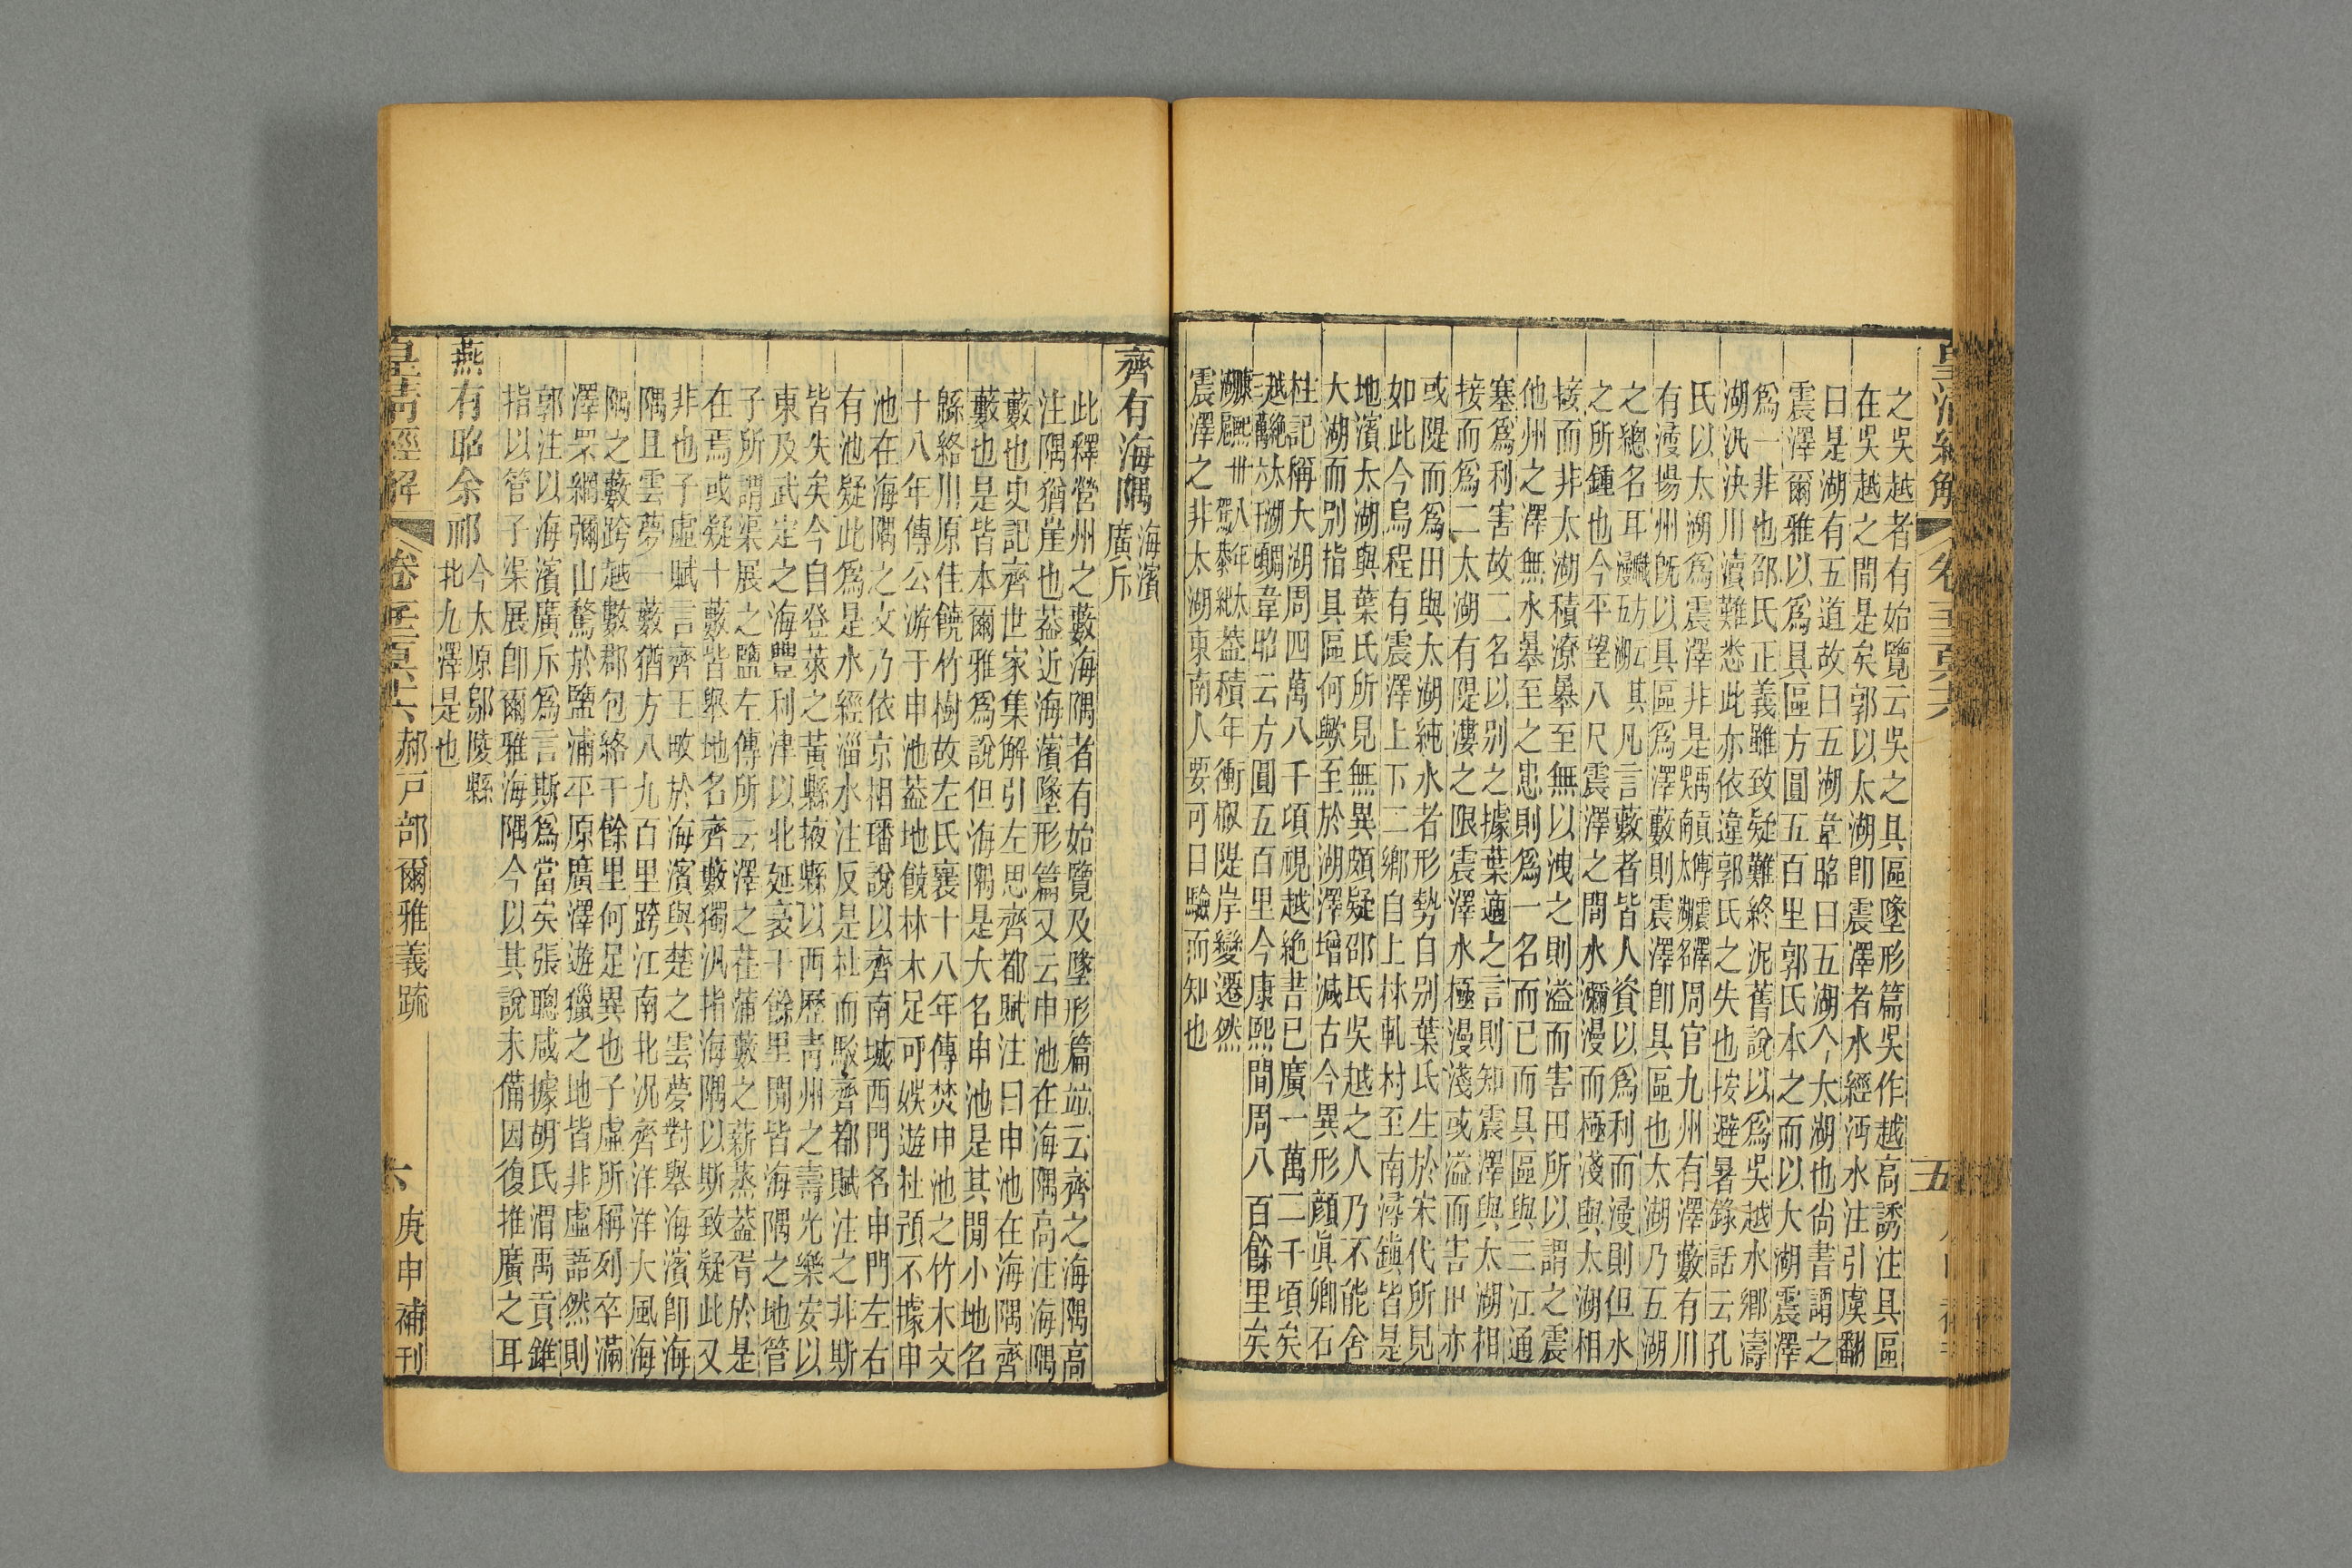 之吳越者有始覽云吳之具區墬形篇吳作越高誘注具區
在吳越之閒是矣郭以太湖卽震澤者水經沔水注引虞翻
曰是湖有五道故曰五湖韋昭曰五湖今太湖也尙書謂之
震澤爾雅以爲具區方圓五百里郭氏本之而以大湖震澤
爲一非也邵氏正義雖致疑難終泥舊說以爲吳越水鄕濤
湖汎決川瀆難悉此亦依違郭氏之失也按避暑錄話云孔
氏以太湖爲震澤非是周官九州有澤藪有川
有浸揚州旣以具區爲澤藪則震澤卽具區也太湖乃五湖
之總名耳其凡言藪者皆人資以爲利而浸則但水
之所鍾也今平望八尺震澤之閒水瀰漫而極淺與太湖相
接而非太湖積潦暴至無以洩之則溢而害田所以謂之震
他州之澤無水暴至之患則爲一名而已而具區與三江通
塞爲利害故二名以别之據葉適之言則知震澤與太湖相
接而爲二太湖有隄漊之限震澤水極漫淺或溢而害田亦
或隄而爲田與太湖純水者形勢自别葉氏生於宋代所見
如此今烏程有震澤上下二鄕自上林軋村至南潯鎭皆是
地濱太湖與葉氏所見無異頗疑邵氏吳越之人乃不能舍
大湖而别指具區何歟至於湖澤增減古今異形顔眞卿石
柱記稱大湖周四萬八千項視越絶書已廣一萬二千頃矣
韋昭云方圓五百里今康熙閒周八百餘里矣
蓋積年衝椒隄岸變遷然
震澤之非太湖東南人要可日驗而知也
齊有海隅海濱廣斥
此釋營州之藪海隅者有始覽及墬形篇竝云齊之海隅高
注隅猶崖也葢近海濱墬形篇又云申池在海隅高注海隅
藪也史記齊世家集解引左思齊都賦注曰申池在海隅齊
藪也是皆本爾雅爲說但海隅是大名申池是其閒小地名
緜絡川原佳饒竹樹故左氏襄十八年傳焚申池之竹木文
十八年傳公游于申池葢地饒林木足可娛遊杜預不據申
池在海隅之文乃依京相璠說以齊南城西門名申門左右
有池疑此爲是水經淄水注反是杜而駮齊都賦注之非斯
皆失矣今自登萊之黃縣掖縣以西歷靑州之壽光樂安以
東及武定之海豐利津以北延袤千餘里閒皆海隅之地管
子所謂渠展之鹽左傳所云澤之萑蒲藪之薪蒸葢胥於是
在焉或疑十藪皆舉地名齊藪獨汎指海隅以斯致疑此又
非也子虛賦言齊王畋於海濱與楚之雲夢對舉海濱卽海
隅且雲夢一藪猶方八九百里跨江南北況齊洋洋大風海
隅之藪跨越數郡包絡千餘里何足異也子虛所稱列卒滿
澤罘網彌山騖於鹽浦平原廣澤遊獵之地皆非虛語然則
郭注以海濱廣斥爲言斯爲當矣張聰咸據胡氏渭禹貢錐
指以管子渠展卽爾雅海隅今以其說未備因復推廣之耳
燕有昭余祁今太原鄔陵縣北九澤是也
皇淸經解 卷 郝戸部爾雅義疏 六 庚申補刊